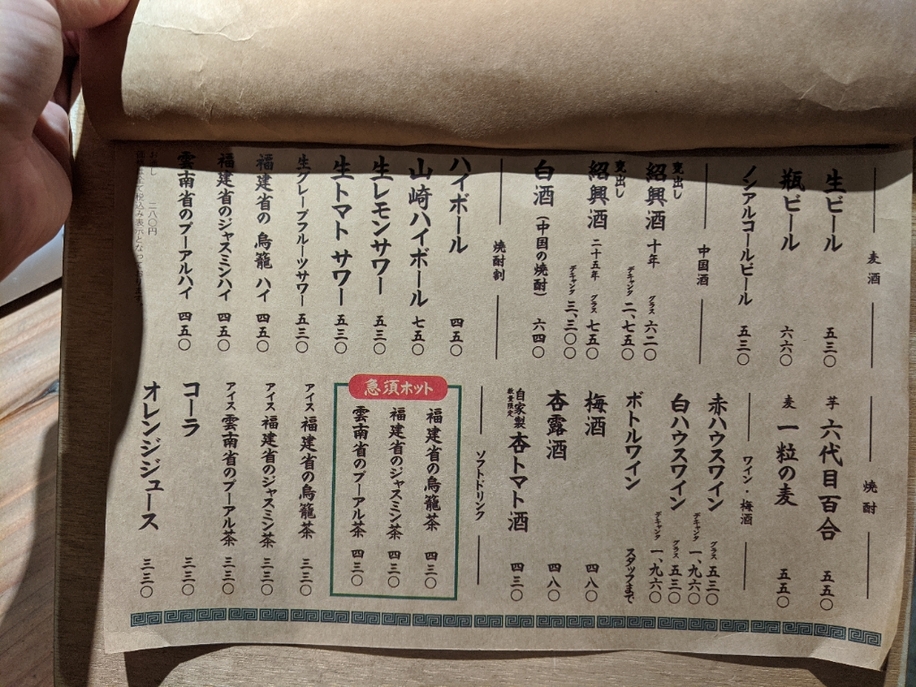 麦酒
生ビール 五三〇
瓶ビール 六六〇
ノンアルコールビール 五三〇
中国酒
甕出し 紹興酒 十年 グラス 六二〇
デキャンタ 二、七五〇
甕出し 紹興酒 二十五年 グラス 七五〇
デキャンタ 三、三〇〇
白酒（中国の焼酎） 六四〇
焼酎割
ハイボール 四五〇
山崎ハイボール 七五〇
生レモンサワー 五三〇
生トマトサワー 五三〇
生グレープフルーツサワー 五三〇
福建省の烏龍ハイ 四五〇
福建省のジャスミンハイ 四五〇
雲南省のプーアルハイ 四五〇
焼酎
芋 六代目百合 五五〇
麦 一粒の麦 五五〇
ワイン・梅酒
赤ハウスワイン グラス 五三〇
デキャンタ 一、九六〇
白ハウスワイン グラス 五三〇
デキャンタ 一、九六〇
ボトルワイン スタッフまで
梅酒 四八〇
杏露酒 四八〇
自家製 杏トマト酒 四三〇
数量限定
ソフトドリンク
急須ホット
福建省の烏龍茶 四三〇
福建省のジャスミン茶 四三〇
雲南省のプーアル茶 四三〇
アイス 福建省の烏龍茶 三三〇
アイス 福建省のジャスミン茶 三三〇
アイス 雲南省のプーアル茶 三三〇
コーラ 三三〇
オレンジジュース 三三〇